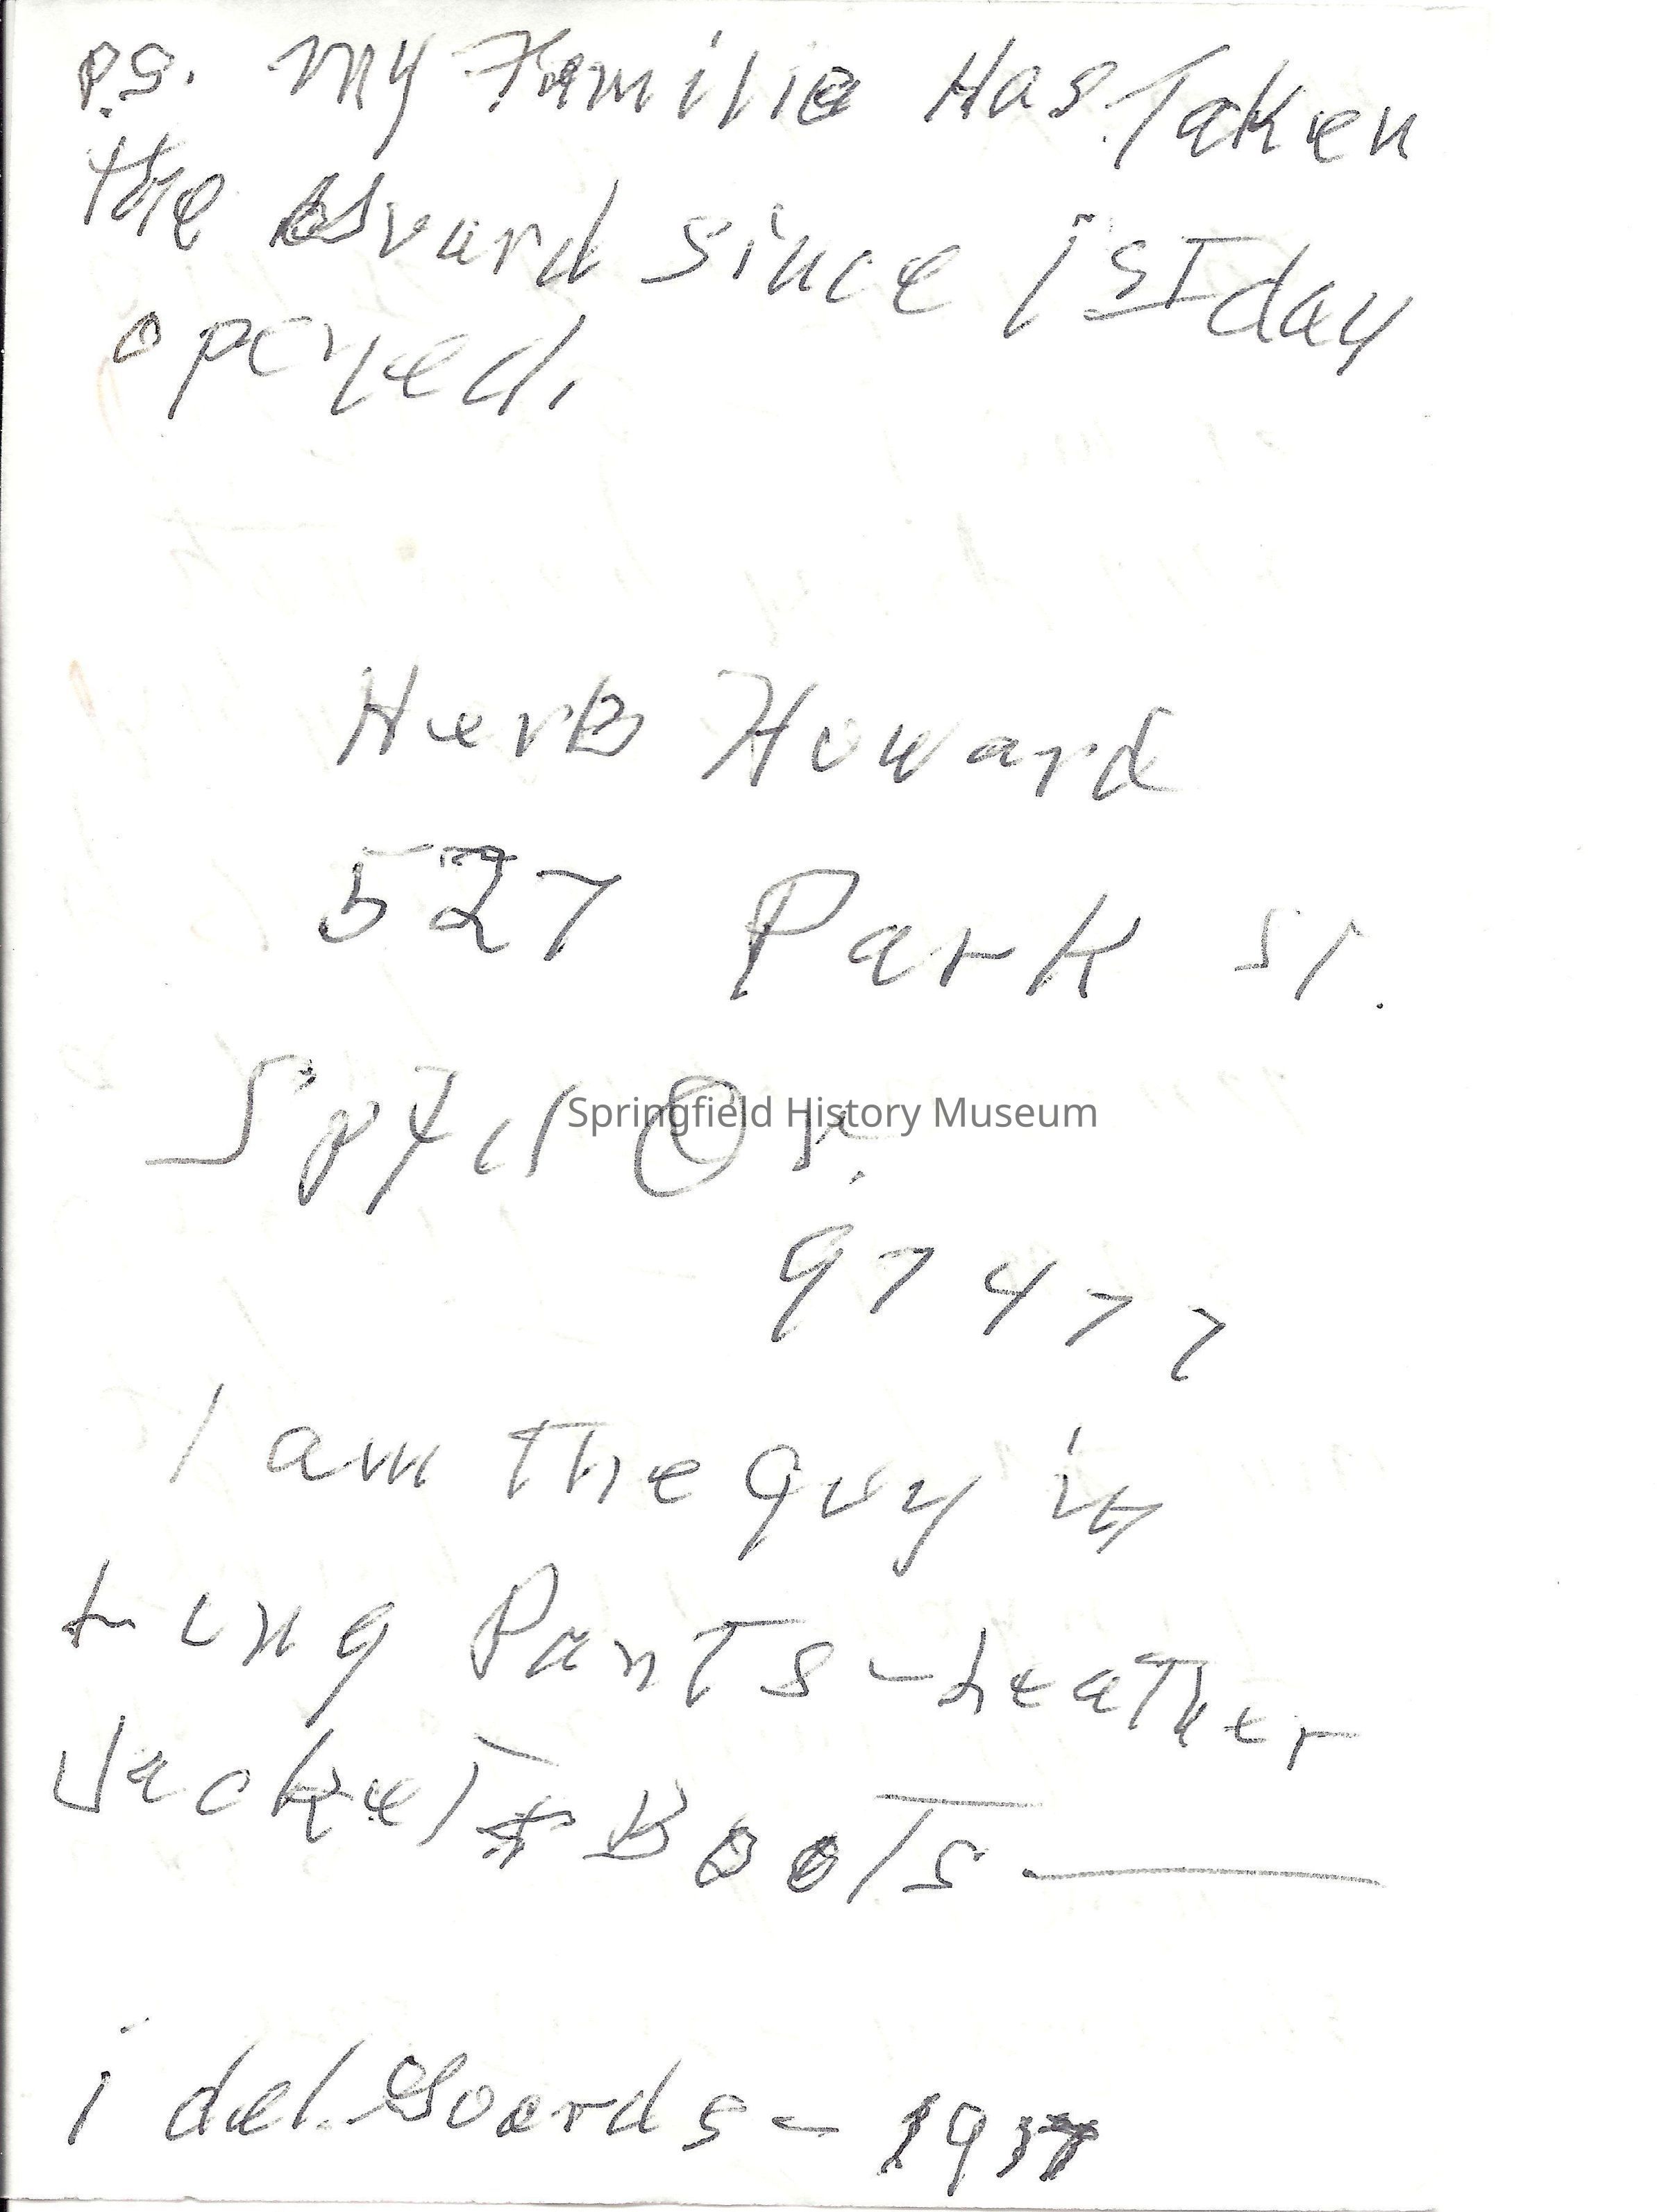 P.S. My Familie Has Taken
the Guard since 1st day
opened.
Herb Howard
527 Park St.
Spfd Or.
Springfield History Museum
97477
I am the guy in
Long Pants - Leather
Jacket & Boots
i del. Goards - 1937